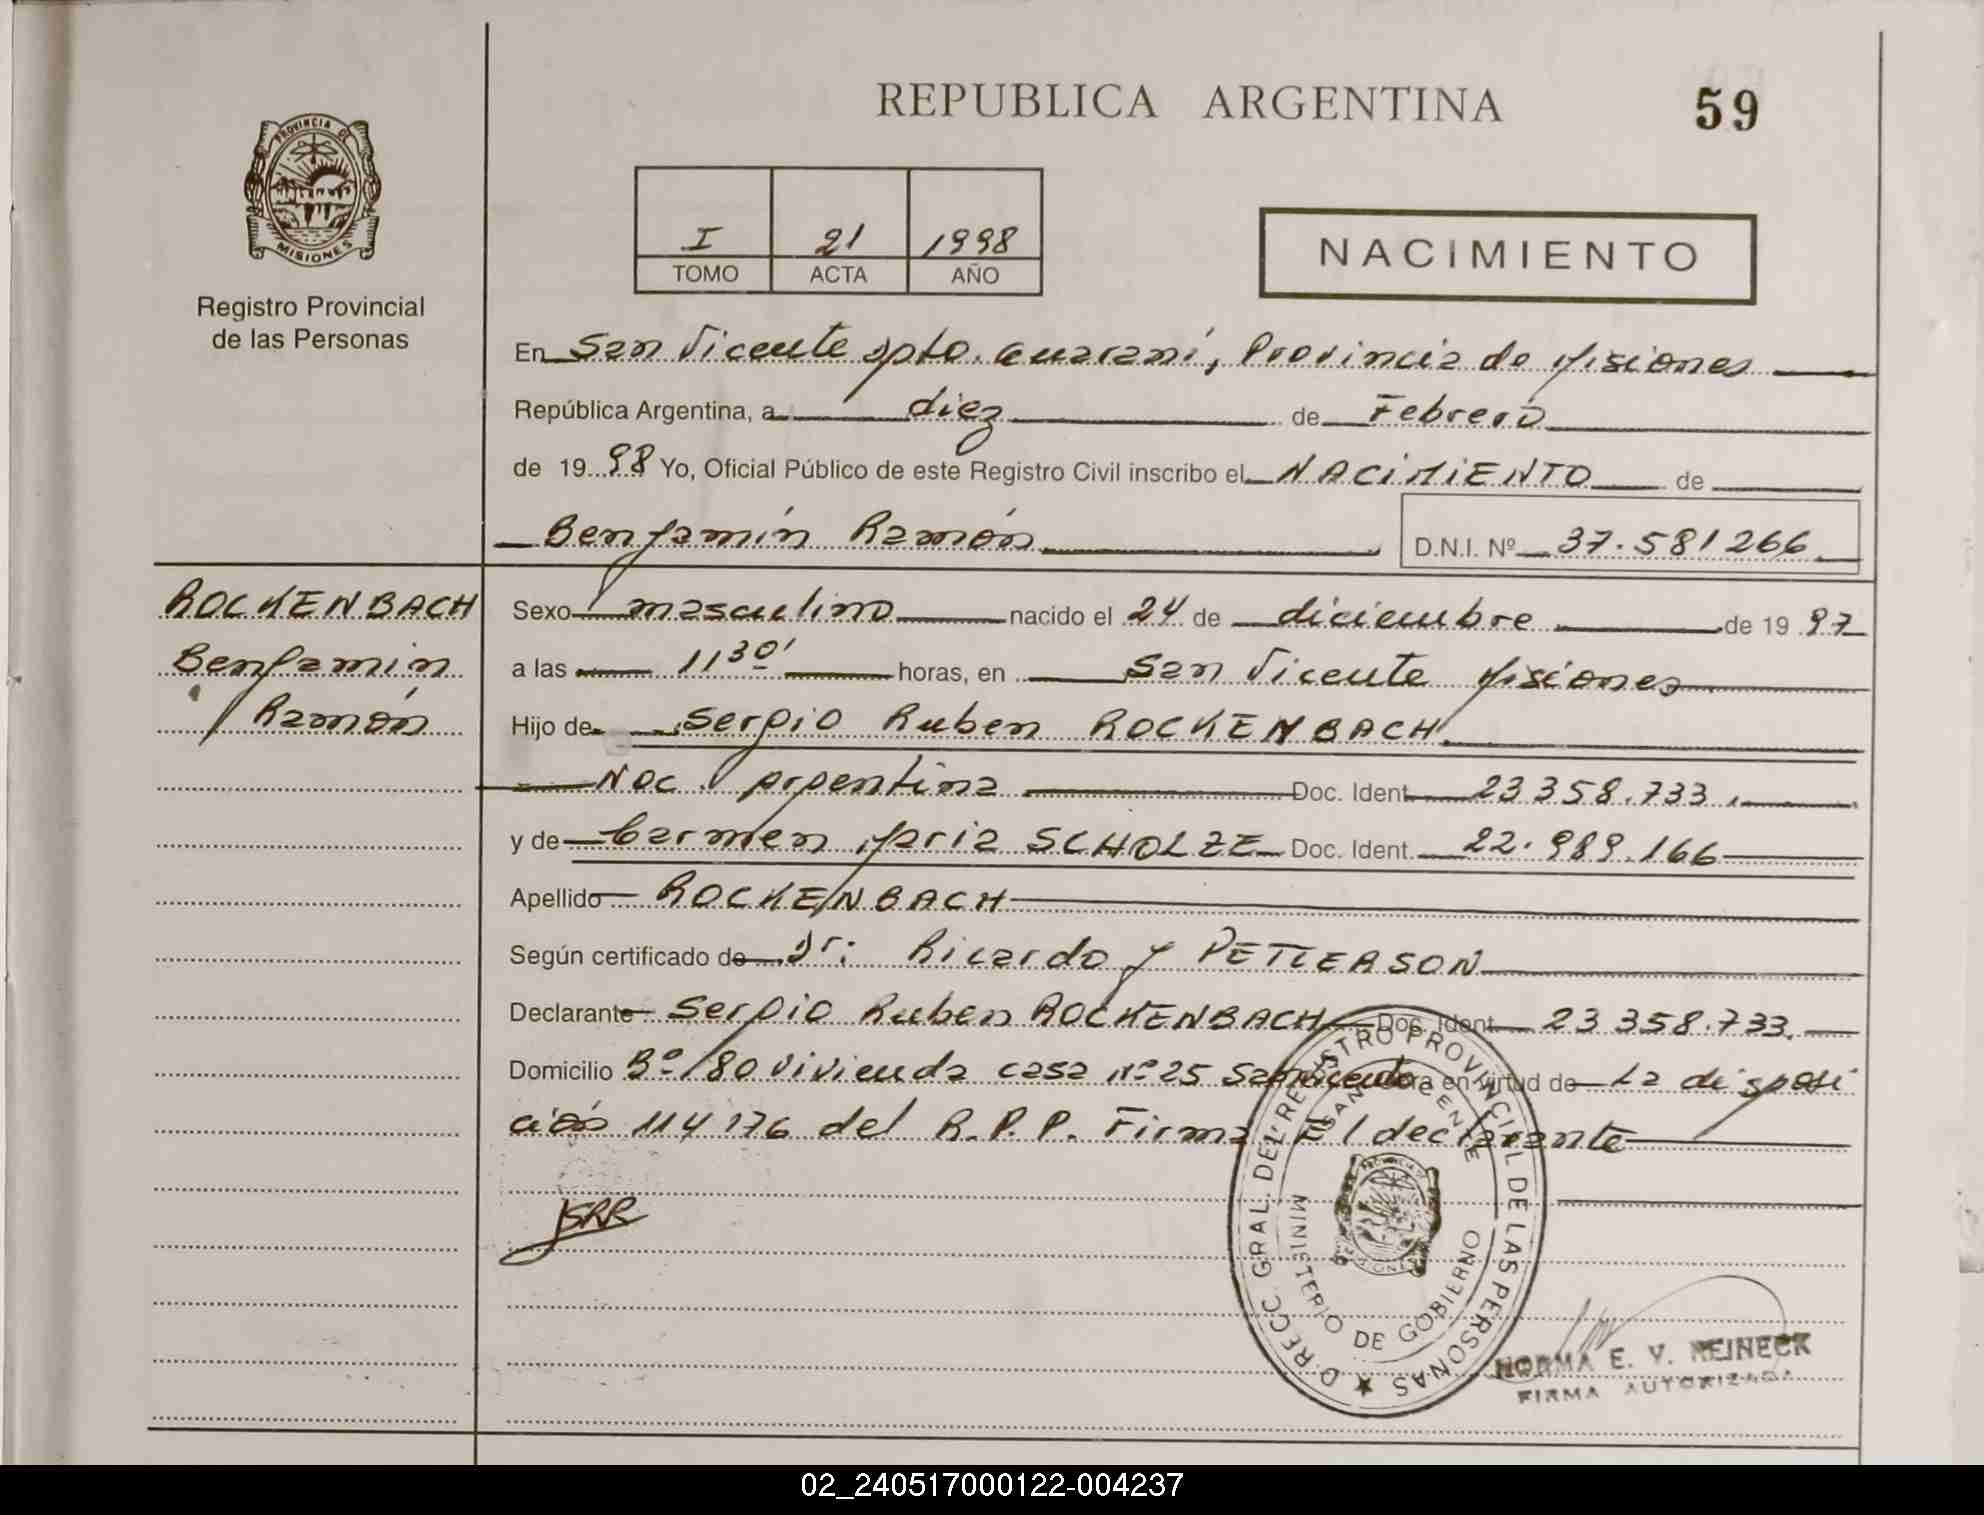 REPUBLICA ARGENTINA
59
PROVINCIA DE
MISIONES
Registro Provincial
de las Personas
I 21 1998
TOMO ACTA AÑO
NACIMIENTO
En San Vicente Dpto. Guaraní, Provincia de Misiones
República Argentina, a diez de Febrero
de 19 98 Yo, Oficial Público de este Registro Civil inscribo el NACIMIENTO de
Benjamín Ramón D.N.I. Nº 37.581266
ROCKENBACH
Benjamin
Ramón
Sexo masculino nacido el 24 de diciembre de 19 97
a las 11 30' horas, en San Vicente Misiones
Hijo de Sergio Ruben ROCKENBACH
Nac. Argentina Doc. Ident. 23 358.733.
y de Carmen Maria SCHOLZE Doc. Ident. 22.989.166
Apellido ROCKENBACH
Según certificado de Dr: Ricardo J PETTERSON
Declarante Sergio Ruben ROCKENBACH Doc. Ident. 23 358.733.
Domicilio Bº 180 vivienda casa Nº 25 Sarmiento en virtud de La disposi
ción 114 176 del R.P.P. Firma El declarante
DIRECC. GRAL. DEL REGISTRO PROVINCIAL DE LAS PERSONAS
SAN VICENTE
MINISTERIO DE GOBIERNO
NORMA E. V. MEINECK
FIRMA AUTORIZADA
02_240517000122-004237